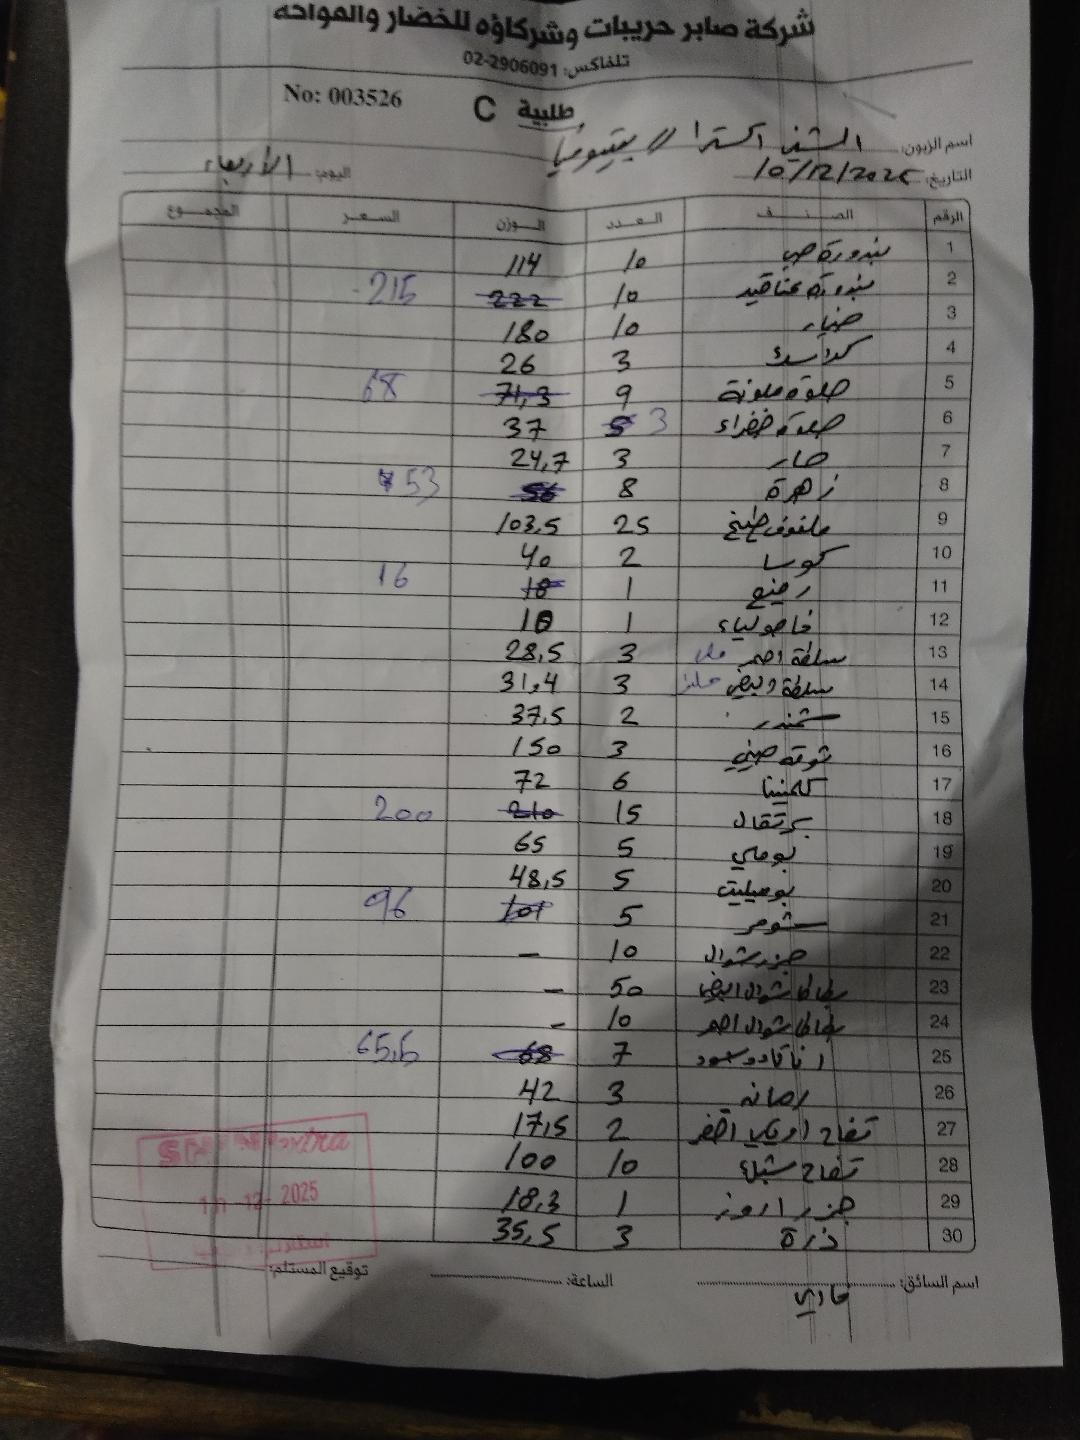 شركة صابر حريبات وشركاؤه للخضار والفواكه
تلفاكس: 02-2906091
No: 003526
طلبية C
اسم الزبون: الشني اكسترا //
التاريخ: 10/12/2025 اليوم: الأربعاء
الرقم الصنف العدد الوزن السعر المجموع
1 بندورة حب 10 114
2 بندورة عناقيد 10 222 215
3 خيار 10 180
4 3 26
5 حلوة ملونة 9 71,3 68
6 حلوة خضراء 5 3 37
7 حار 3 24,7
8 زهرة 8 56 53
9 ملفوف طبخ 25 103,5
10 كوسا 2 40
11 رفيع 1 18 16
12 فاصولياء 1 10
13 سلطة احمر 3 28,5
14 سلطة ابيض 3 31,4
15 شمندر 2 37,5
16 صيني 3 150
17 كلمنتينا 6 72
18 برتقال 15 210 200
19 بوملي 5 65
20 بوميليت 5 48,5
21 شومر 5 101 96
22 جزر شوال 10 -
23 بطاطا شوال ابيض 50 -
24 بطاطا شوال احمر 10 -
25 7 68 65,5
26 رمانه 3 42
27 تفاح 2 17,5
28 تفاح 10 100
29 جزر 1 18,3
30 ذرة 3 35,5
extra
10 -12- 2025
اسم السائق: الساعة: توقيع المستلم:
فادي